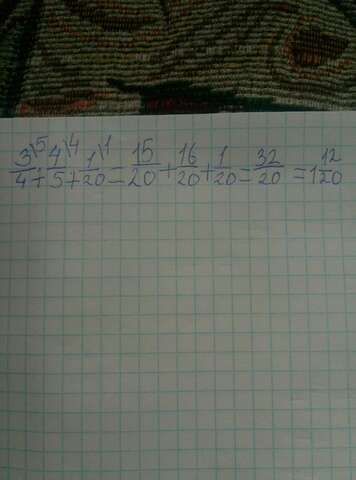 3\5/4 + 4\4/5 + 1\1/20 = 15/20 + 16/20 + 1/20 = 32/20 = 1 12/20